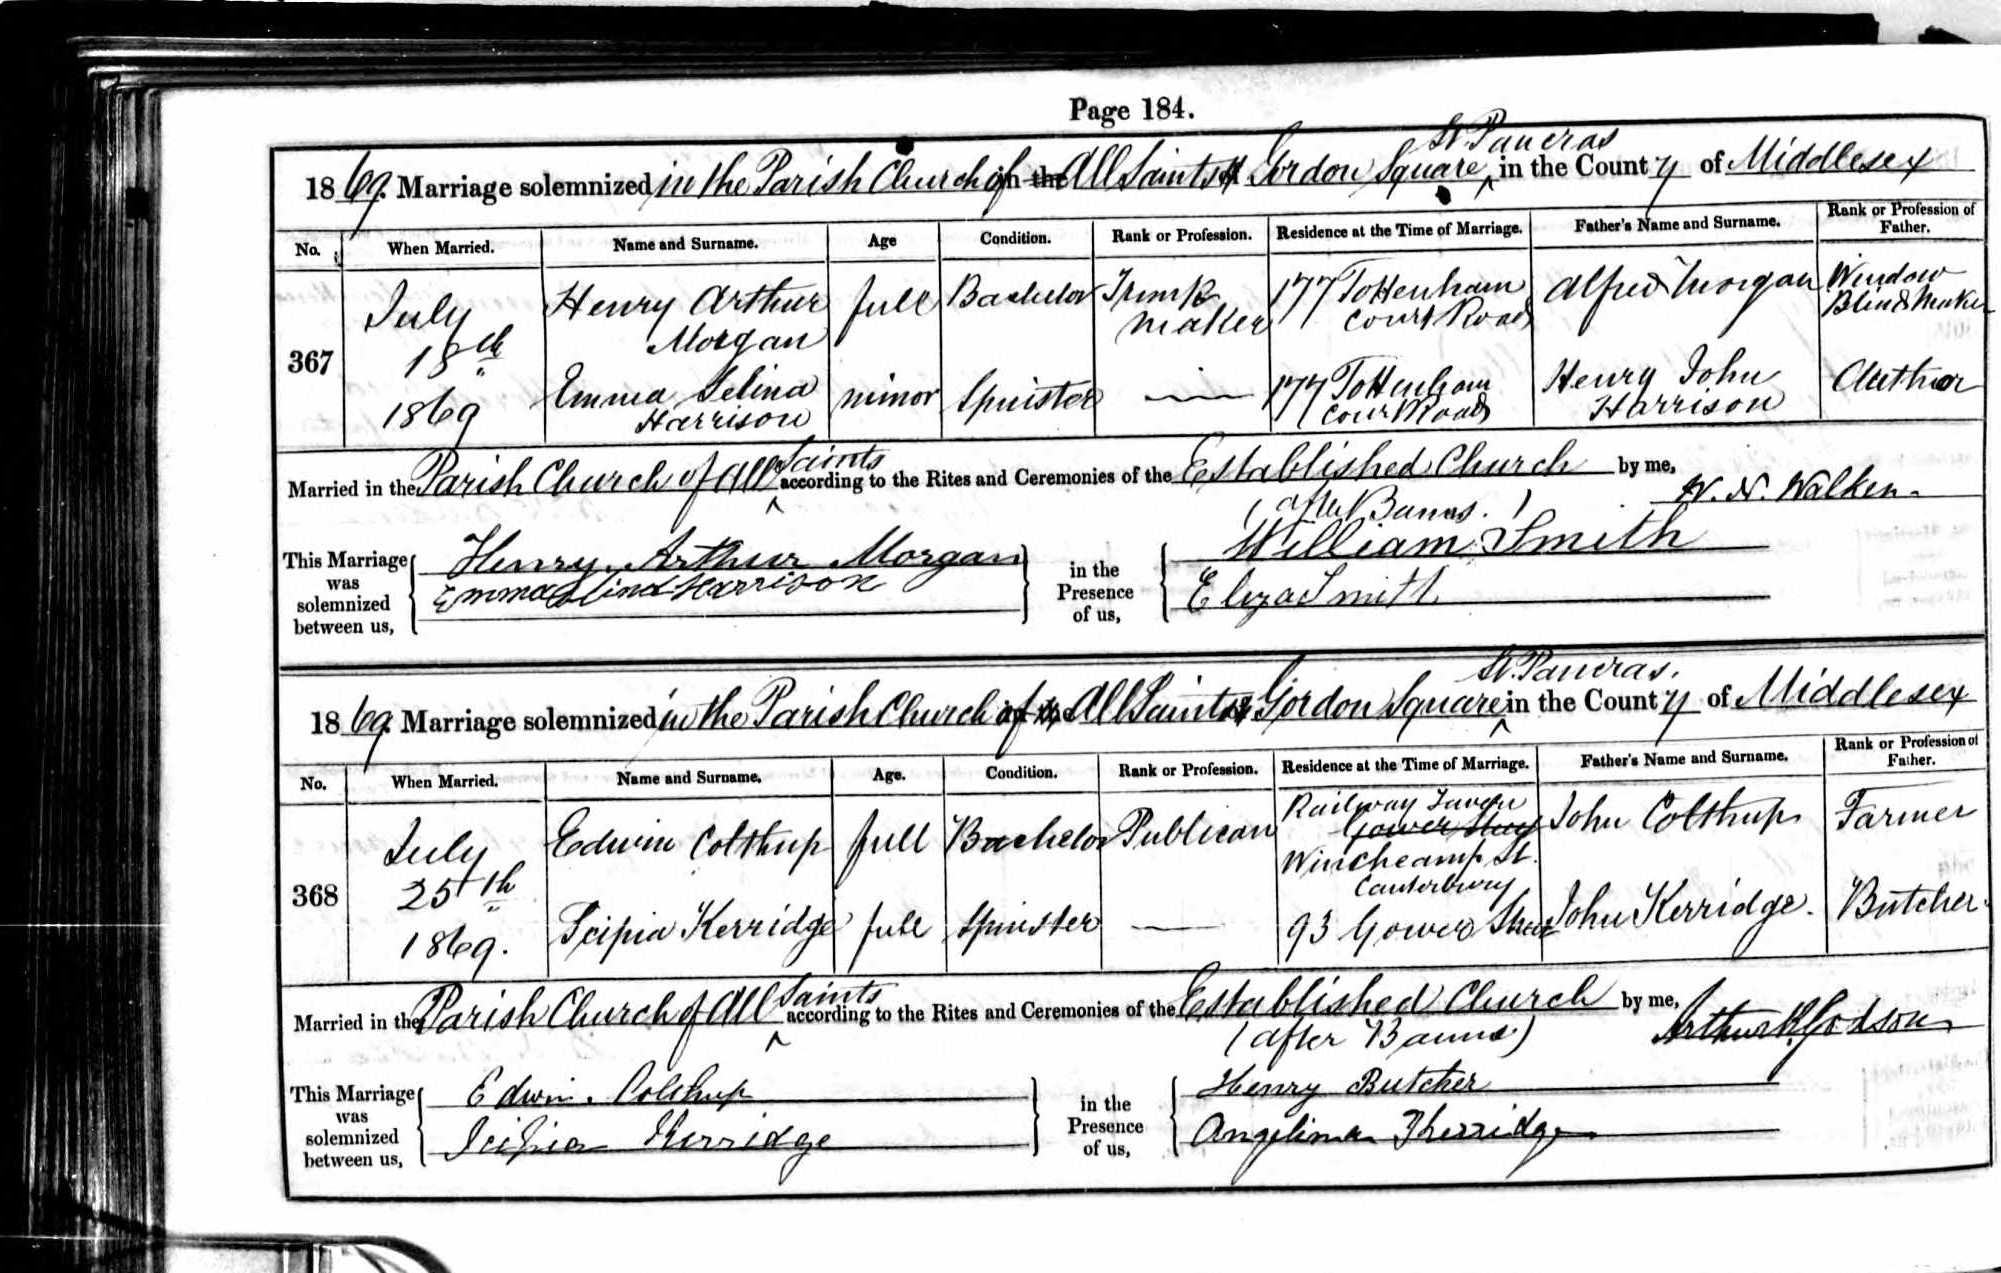 Page 184.
St. Pancras
1869. Marriage solemnized in the Parish Church of All Saints Gordon Square in the County of Middlesex
No. When Married. Name and Surname. Age Condition. Rank or Profession. Residence at the Time of Marriage. Father's Name and Surname. Rank or Profession of Father.
367 July 18th 1869 Henry Arthur Morgan full Bachelor Trunk maker 177 Tottenham Court Road Alfred Morgan Window Blind Maker
Emma Selina Harrison minor Spinster 177 Tottenham Court Road Henry John Harrison Author
Married in the Parish Church of All Saints according to the Rites and Ceremonies of the Established Church by me,
(after Banns.) W. N. Walker.
This Marriage was solemnized between us, Henry Arthur Morgan in the Presence of us, William Smith
Emma Selina Harrison Eliza Smith
St. Pancras.
1869. Marriage solemnized in the Parish Church of All Saints Gordon Square in the County of Middlesex
No. When Married. Name and Surname. Age. Condition. Rank or Profession. Residence at the Time of Marriage. Father's Name and Surname. Rank or Profession of Father.
368 July 25th 1869. Edwin Colthup full Bachelor Publican Railway Tavern Gower Street Wincheamp St. Canterbury John Colthup Farmer
Scipia Kerridge full Spinster 93 Gower Street John Kerridge. Butcher
Married in the Parish Church of All Saints according to the Rites and Ceremonies of the Established Church by me,
(after Banns) Arthur R. Godson
This Marriage was solemnized between us, Edwin Colthup in the Presence of us, Henry Butcher
Scipia Kerridge Angelina Kerridge